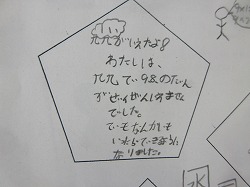 九九がいえたよ!
わたしは、
九九で9のだん
がぜんぜんいえません
でした。
でもなんかいも
いったらできるように
なりました。